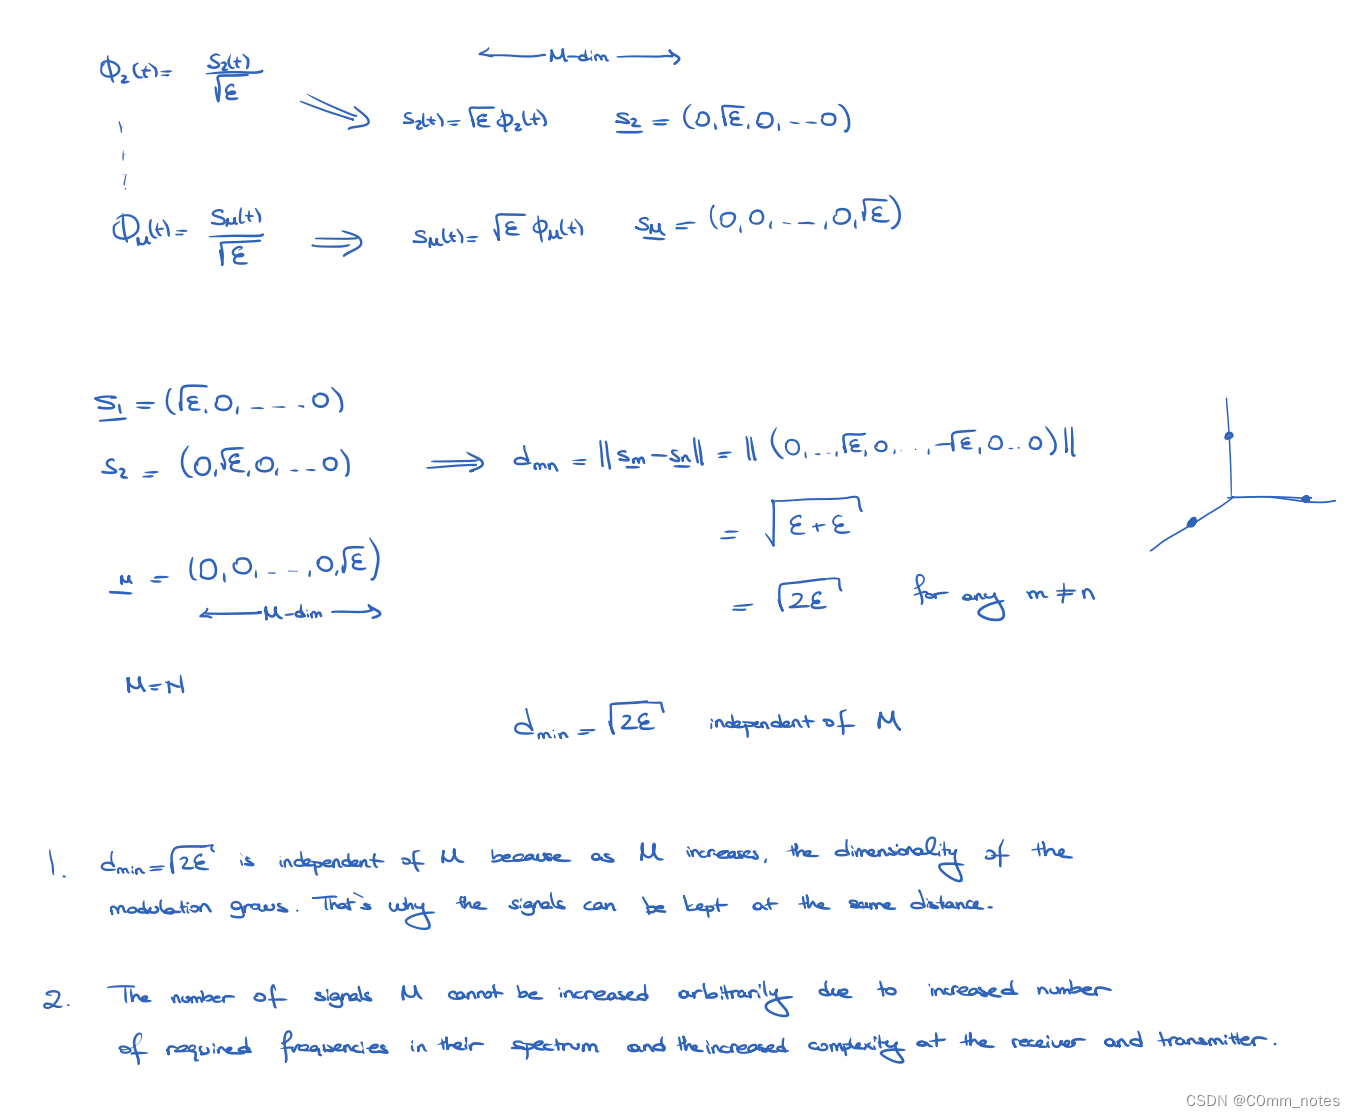 ϕ₂(t) = s₂(t)/√ε
← M-dim →
⇒ s₂(t) = √ε ϕ₂(t) s₂ = (0, √ε, 0, ---0)
ϕ_M(t) = s_M(t)/√ε ⇒ s_M(t) = √ε ϕ_M(t) s_M = (0, 0, ---, 0, √ε)
s₁ = (√ε, 0, ----0)
s₂ = (0, √ε, 0, ---0) ⇒ d_mn = ||s_m - s_n|| = || (0, .., √ε, 0, ..., -√ε, 0..0) ||
= √(ε + ε)
M = (0, 0, ---, 0, √ε)
← M-dim →
= √(2ε) for any m ≠ n
M = N
d_min = √(2ε) independent of M
1. d_min = √(2ε) is independent of M because as M increases, the dimensionality of the
modulation grows. That's why the signals can be kept at the same distance.
2. The number of signals M cannot be increased arbitrarily due to increased number
of required frequencies in their spectrum and the increased complexity at the receiver and transmitter.
CSDN @C0mm_notes